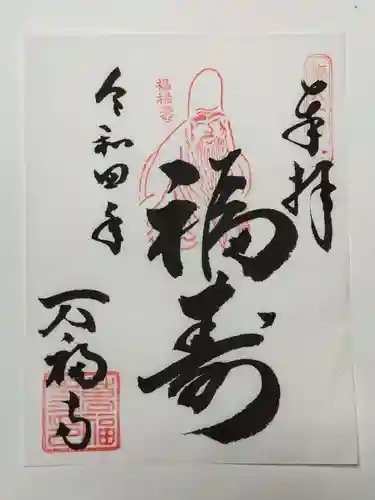 奉拝
福寿
福禄寿
令和四年
万福寺